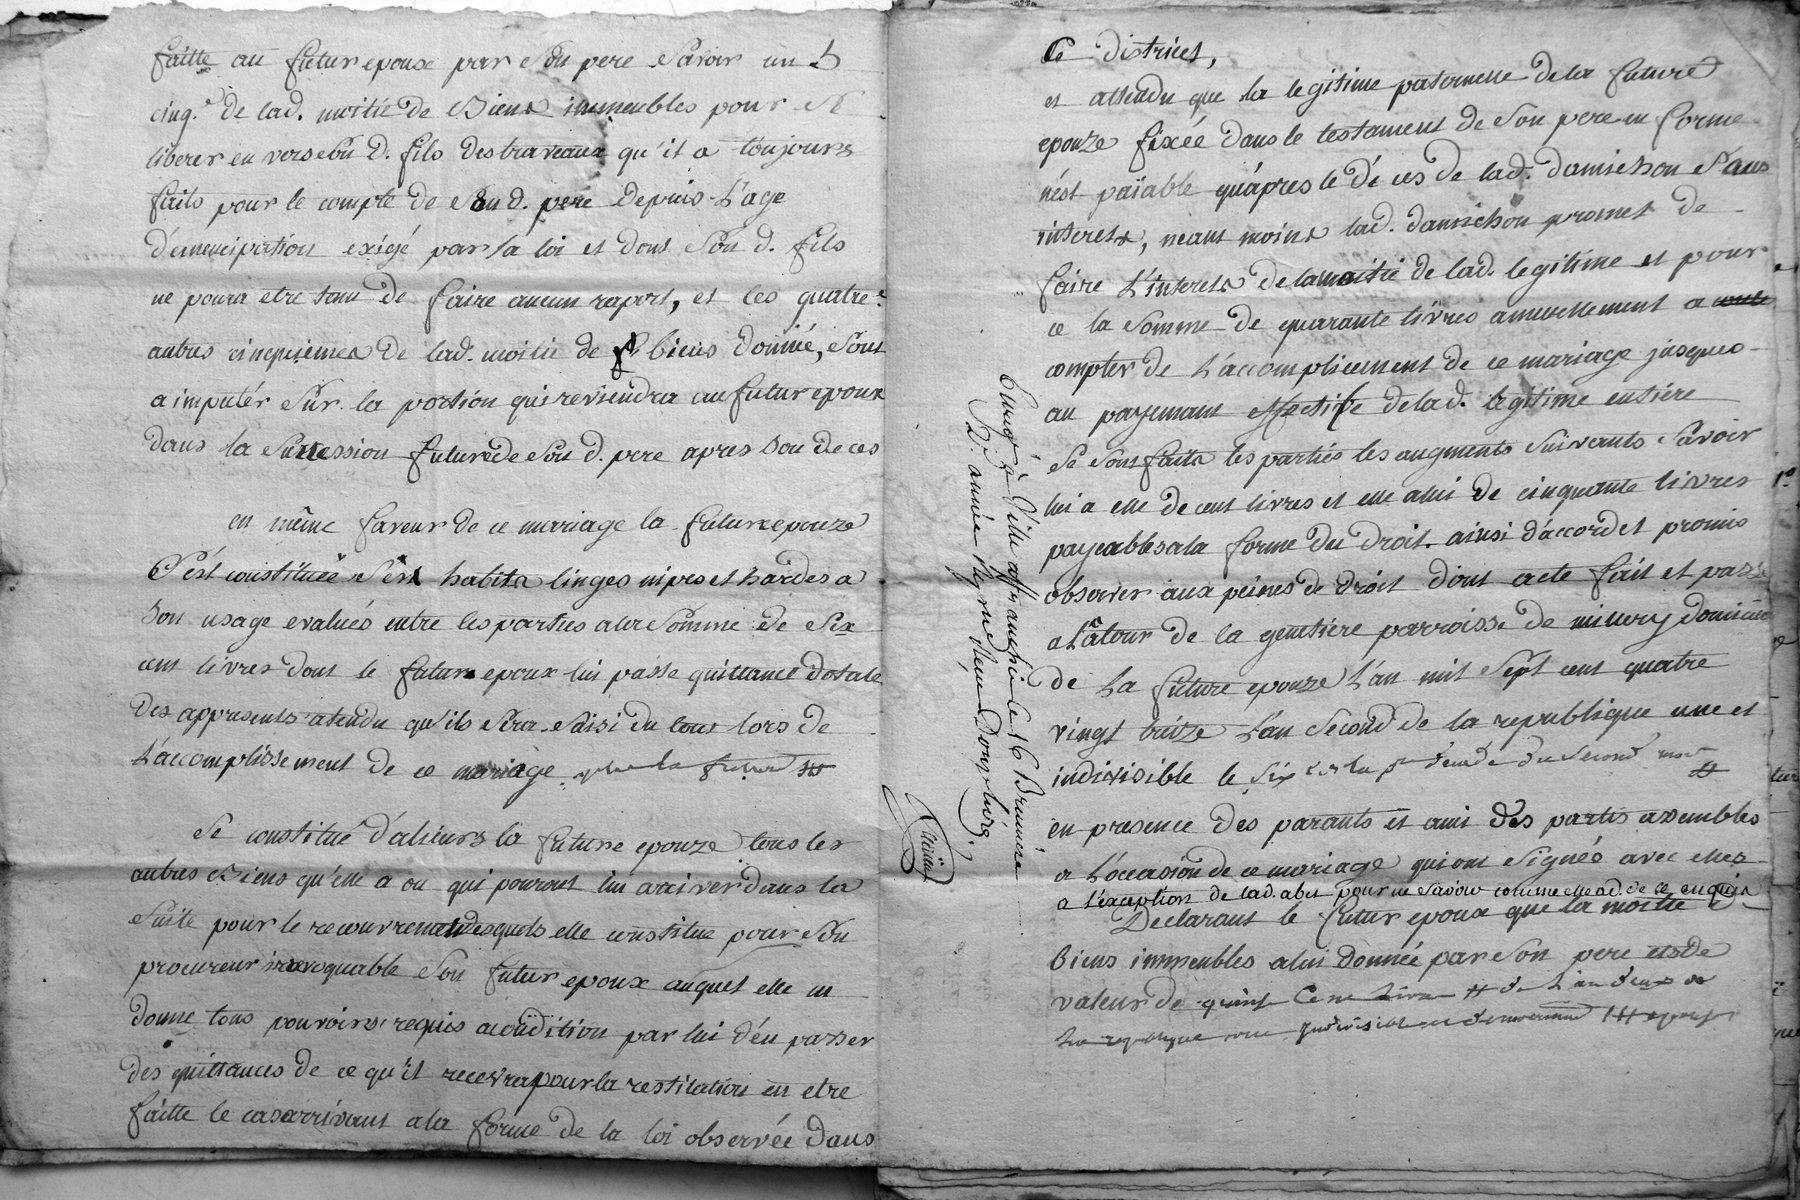 faitte au futur epoux par son pere savoir un
cinq.e de lad. moitié de Biens immeubles pour se
liberer en vers son d. fils des traveaux qu'il a toujours
faits pour le compte de son d. pere depuis l'age
d'emencipation exigé par la loi et dont son d. fils
ne poura etre tenu de faire aucun raport, et les quatre
autres cinquiemes de lad. moitié de biens donné, sont
a imputér sur la portion qui reviendra au futur epoux
dans la succession future de son d. pere apres son deces
en même faveur de ce mariage la future epouze
s'est constituée ses habits linges nipes et hardes a
son usage evalués entre les parties a la somme de six
cent livres dont le futur epoux lui passe quittance dotale
des appresents atendu qu'ils sera saisi du tout lors de
l'accomplissement de ce mariage
se constitue d'alieurs la future epouze tous les
autres Biens qu'elle a ou qui pouront lui arriver dans la
suite pour le recouvrement desquels elle constitue pour son
procureur irrevoquable son futur epoux auquel elle en
donne tous pouvoirs requis a condition par lui d'en passer
des quittances de ce qu'il recevra pour la restitution en etre
faitte le cas arrivant a la forme de la loi observée dans
Ce district,
et attendu que la legitime paternelle de la future
epouze fixée dans le testament de son pere en forme
n'est païable qu'apres le déces de lad. damichon sans
interets, neant moins lad. damichon promet de
faire l'interets de la moitié de lad. legitime et pour
ce la somme de quarante livres annuellement a
compter de l'accomplicement de ce mariage jusques
au payemant effectife de lad. legitime entiere
se sont faits les parties les augments suivants savoir
lui a elle de cent livres et elle a lui de cinquante livres
payeables a la forme du droit. ainsi d'accord et promis
observer aux peines de droit dont acte fait et passé
a Latour de la gentiere parroisse de minery domicile
de la future epouze l'an mil sept cent quatre
vingt treize l'an second de la republique une et
indivisible le six
en presence des parants et ami des partis assembles
a l'occasion de ce mariage qui ont signés avec elles
a l'exception de lad. abet pour ne savoir comme elle a d. de ce enquis
Declarant le futur epoux que la moitié
Biens immeubles a lui donnée par son pere est de
valeur de
Enreg.é à Ville affranchie le 16 Brumaire
2.e année